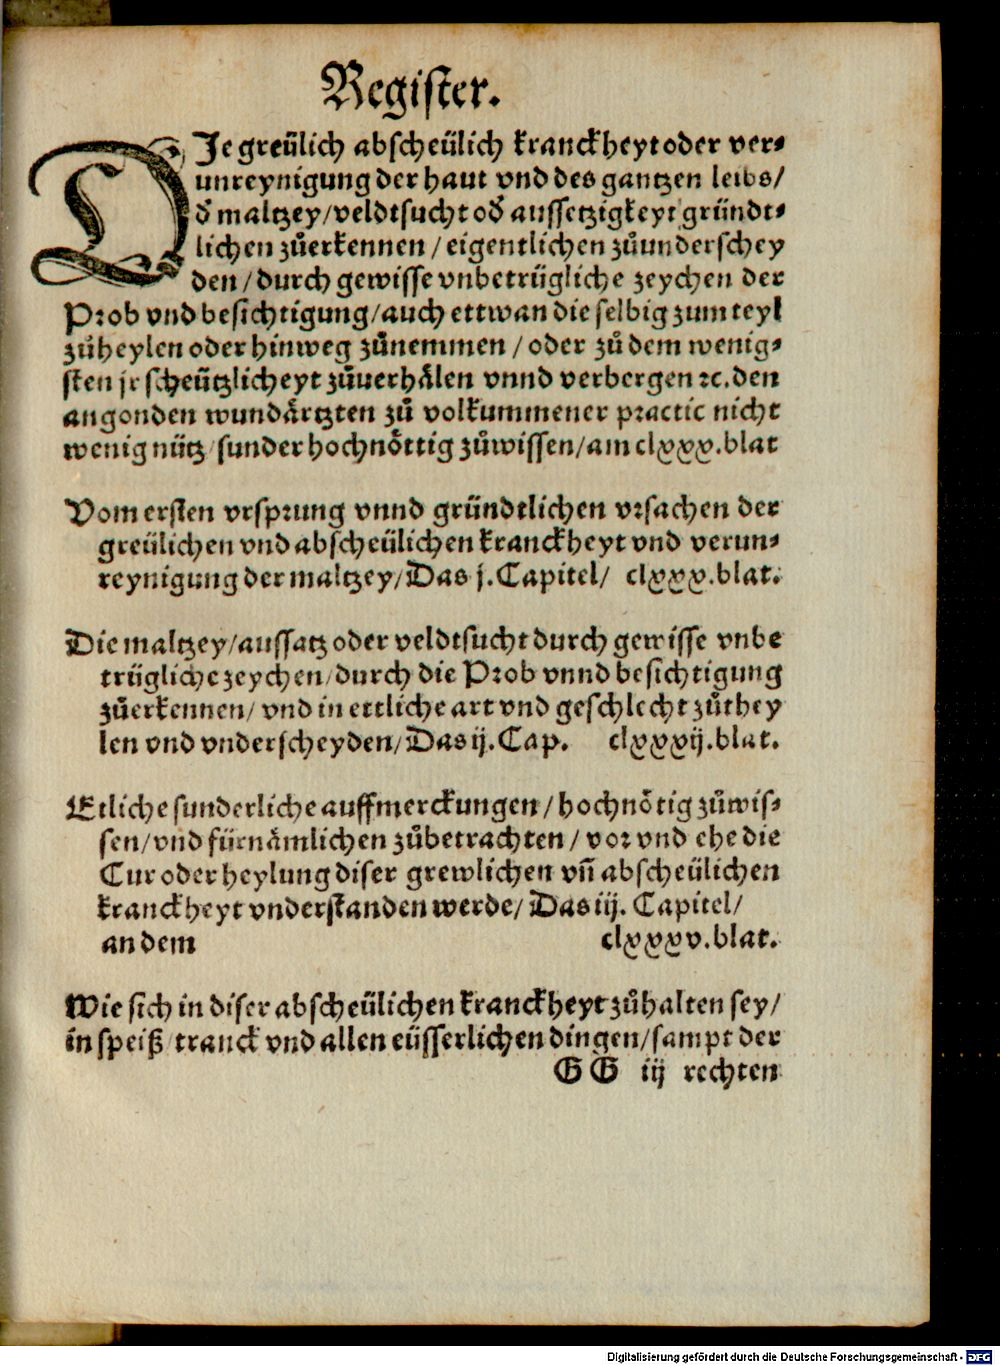 Register.
DIe greülich abscheülich kranckheyt oder ver⸗
unreynigung der haut vnd des gantzen leibs/
d' maltzey/veldtsucht od' aussetzigkeyt gründt⸗
lichen zůerkennen/eigentlichen zůunderschey
den/durch gewisse vnbetrügliche zeychen der
Prob vnd besichtigung/auch ettwan die selbig zum teyl
zůheylen oder hinweg zůnemmen/oder zů dem wenig⸗
sten jr scheützlicheyt zůuerhålen vnnd verbergen ⁊c. den
angonden wundårtzten zů volkummener practic nicht
wenig nütz/sunder hochnöttig zůwissen/am clxxx.blat
Vom ersten vrsprung vnnd gründtlichen vrsachen der
greülichen vnd abscheülichen kranckheyt vnd verun⸗
reynigung der maltzey/Das j. Capitel/ clxxx.blat.
Die maltzey/aussatz oder veldtsucht durch gewisse vnbe
trügliche zeychen/durch die Prob vnnd besichtigung
zůerkennen/vnd in ettliche art vnd geschlecht zůthey
len vnd vnderscheyden/Das ij. Cap. clxxxij.blat.
Etliche sunderliche auffmerckungen/hochnötig zůwis⸗
sen/vnd fürnåmlichen zůbetrachten/vor vnd ehe die
Cur oder heylung diser grewlichen vñ abscheülichen
kranckheyt vnderstanden werde/Das iij. Capitel/
an dem clxxxv.blat.
Wie sich in diser abscheülichen kranckheyt zůhalten sey/
in speiß/tranck vnd allen eüsserlichen dingen/sampt der
GG iij rechten
Digitalisierung gefördert durch die Deutsche Forschungsgemeinschaft - DFG